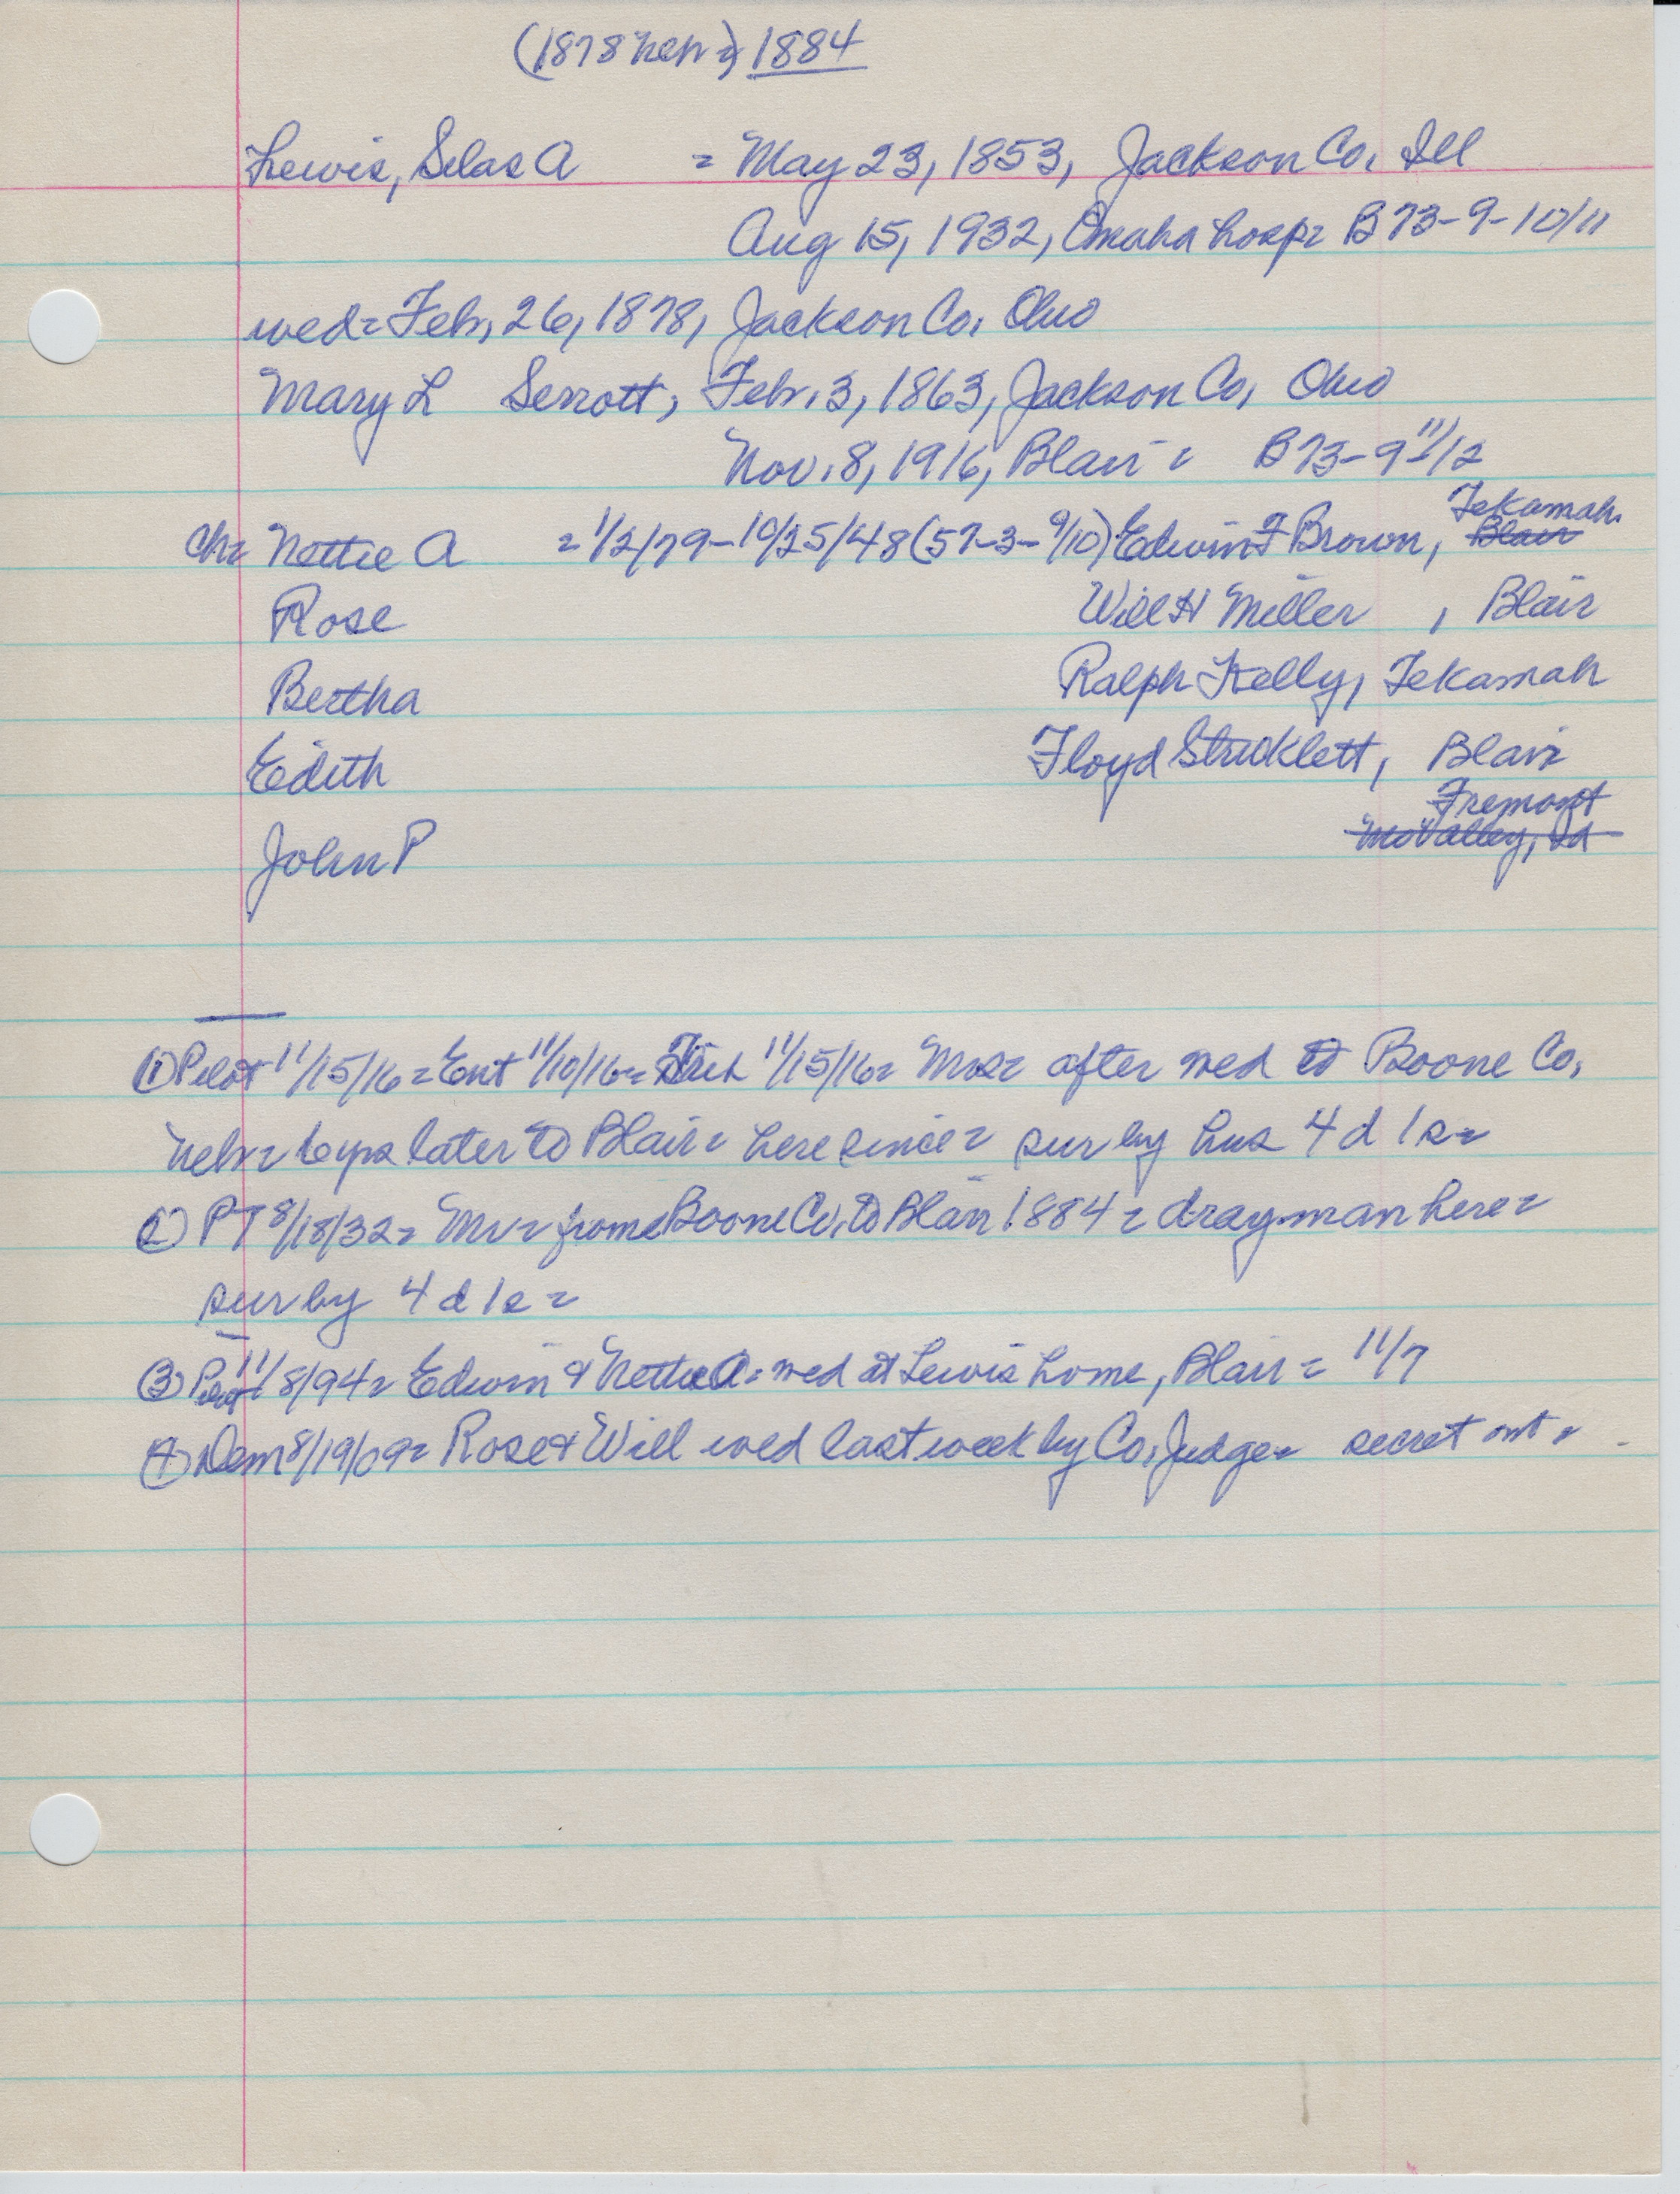 (1878 Neb=) 1884
Lewis, Silas A = May 23, 1853, Jackson Co, Ill
Aug 15, 1932, Omaha hosp= B73-9-10/11
wed= Feb, 26, 1878, Jackson Co, Ohio
Mary L Serrott, Feb. 3, 1863, Jackson Co, Ohio
Nov. 8, 1916, Blair = B73-9 11/12
Tekamah
Ch= Nettie A = 1/2/79-10/25/48 (57-3-9/10) Edwin F Brown, Blair
Rose Will H Miller , Blair
Bertha Ralph Kelly, Tekamah
Edith Floyd Stricklett, Blair
Fremont
John P MoValley, Ia
① Pilot 11/15/16 = Ent 11/10/16 = 11/15/16= Mrs= after wed to Boone Co,
Neb= 6 yrs later to Blair= here since= sur by hus 4 d 1 s=
② PT 8/18/32= Mr= from Boone Co, to Blair 1884 = drayman here=
sur by 4 d 1 s =
③ Pilot 11/8/94= Edwin & Nettie A= wed at Lewis home, Blair = 11/7
④ Dem 8/19/09= Rose & Will wed last week by Co, Judge= secret out =